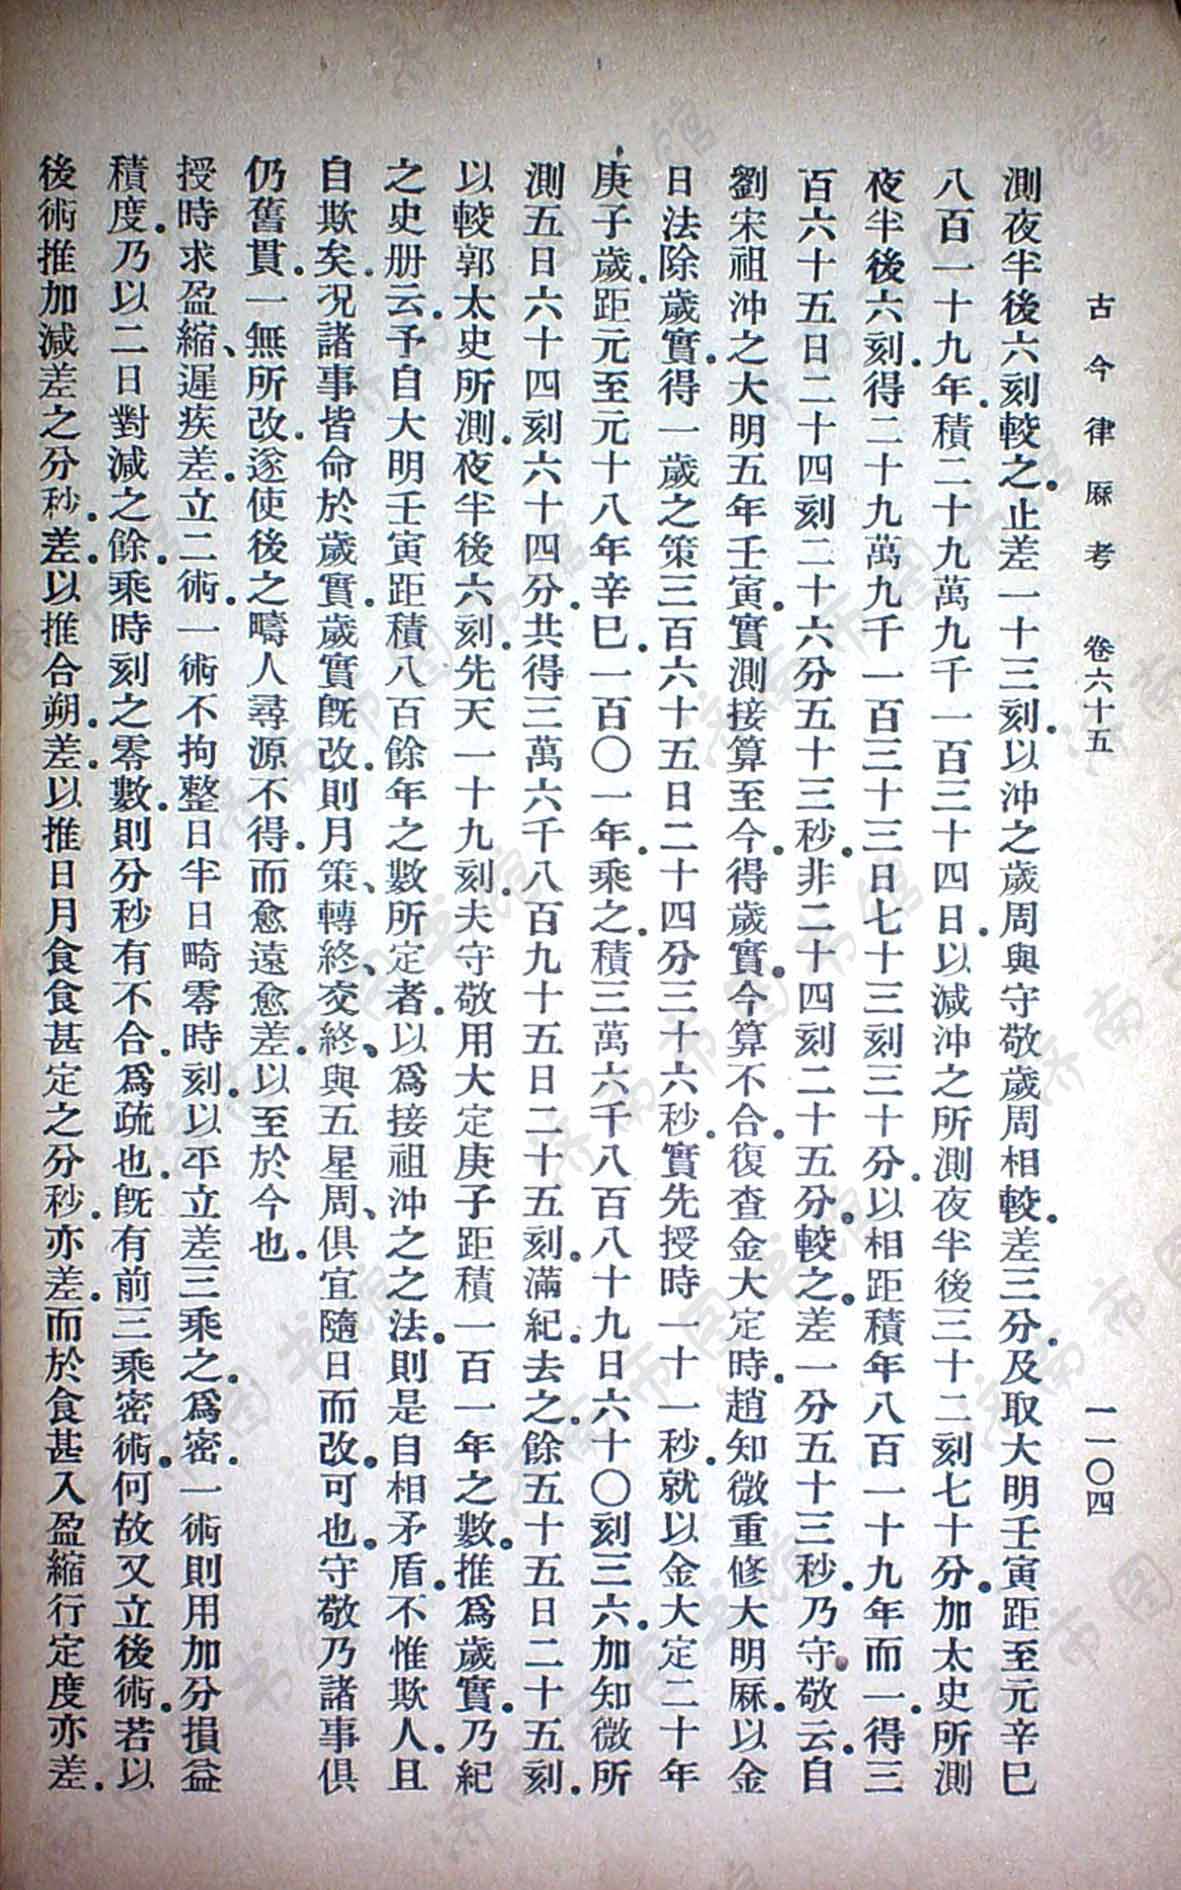 古今律厤考 卷六十五 一一〇四
測夜半後六刻較之。止差一十三刻。以沖之歲周與守敬歲周相較。差三分。及取大明壬寅距至元辛巳
八百一十九年。積二十九萬九千一百三十四日。以減沖之所測夜半後三十二刻七十分。加太史所測
夜半後六刻。得二十九萬九千一百三十三日七十三刻三十分。以相距積年八百一十九年而一。得三
百六十五日二十四刻二十六分五十三秒。非二十四刻二十五分。較之。差一分五十三秒。乃守敬云。自
劉宋祖沖之大明五年壬寅。實測接算至今。得歲實。今算不合。復查金大定時。趙知微重修大明厤。以金
日法除歲實。得一歲之策三百六十五日二十四分三十六秒。實先授時一十一秒。就以金大定二十年
庚子歲。距元至元十八年辛巳。一百〇一年。乘之。積三萬六千八百八十九日六十〇刻三六。加知微所
測五日六十四刻六十四分。共得三萬六千八百九十五日二十五刻。滿紀去之。餘五十五日二十五刻。
以較郭太史所測。夜半後六刻。先天一十九刻。夫守敬用大定庚子距積一百一年之數。推爲歲實。乃紀
之史册云。予自大明壬寅距積八百餘年之數所定者。以爲接祖沖之之法。則是自相矛盾。不惟欺人。且
自欺矣。況諸事皆命於歲實。歲實旣改。則月策、轉終、交終、與五星周、俱宜隨日而改。可也。守敬乃諸事俱
仍舊貫。一無所改。遂使後之疇人尋源不得。而愈遠愈差。以至於今也。
授時求盈縮、遲疾差。立二術。一術不拘整日半日畸零時刻。以平立差三乘之。爲密。一術則用加分損益
積度。乃以二日對減之餘。乘時刻之零數。則分秒有不合。爲疏也。旣有前三乘密術。何故又立後術。若以
後術推加減差之分秒。差。以推合朔。差。以推日月食食甚定之分秒。亦差。而於食甚入盈縮行定度亦差。